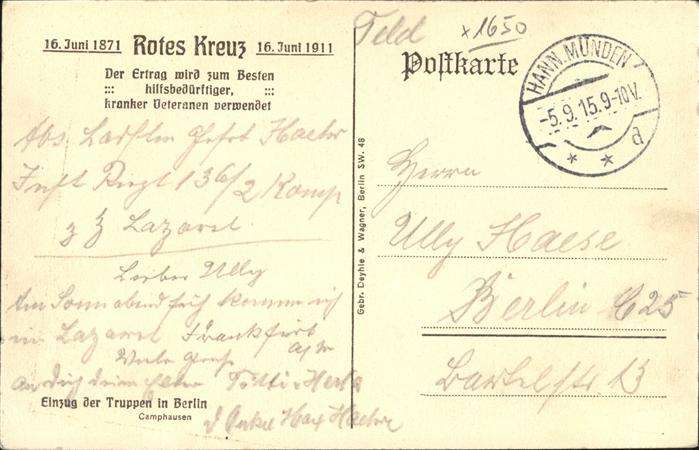 16. Juni 1871 Rotes Kreuz 16. Juni 1911
Der Ertrag wird zum Besten
::: hilfsbedürftiger, :::
kranker Veteranen verwendet
Abs. Gefrt Haese
Inft Regt 136/2 Komp
z Z Lazaret
Lieber Ully
Am Sonnabend früh komme ich
im Lazaret Frankfurt
a/M
Viele Grüße
An dich deine
d Onkel Max Haese
Einzug der Truppen in Berlin
Camphausen
Gebr. Deyhle & Wagner, Berlin SW. 48
Feld
x1650
Postkarte
HANN. MÜNDEN
-5.9.15.9-10V.
* * a
Herrn
Ully Haese
Berlin C 25
Bartelstr 13